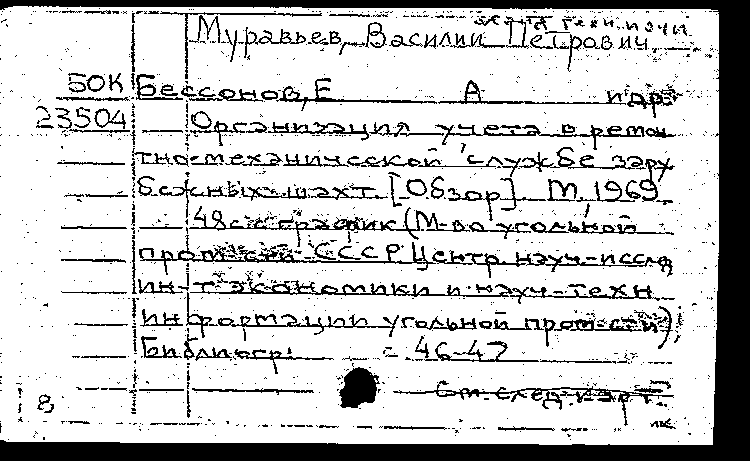 канд. техн. наук
Муравьев, Василий Петрович.
БОК Бессонов, Е А и др.
23504 Организация учета в ремон
тно-механической службе зару
бежных шахт. [Обзор]. М., 1969.
48 с с график (М-во угольной
пром-сти СССР. Центр. науч.-исслед
ин-т экономики и науч.-техн
информации угольной пром-сти).
Библиогр: с 46-47
См. след. карт.
8